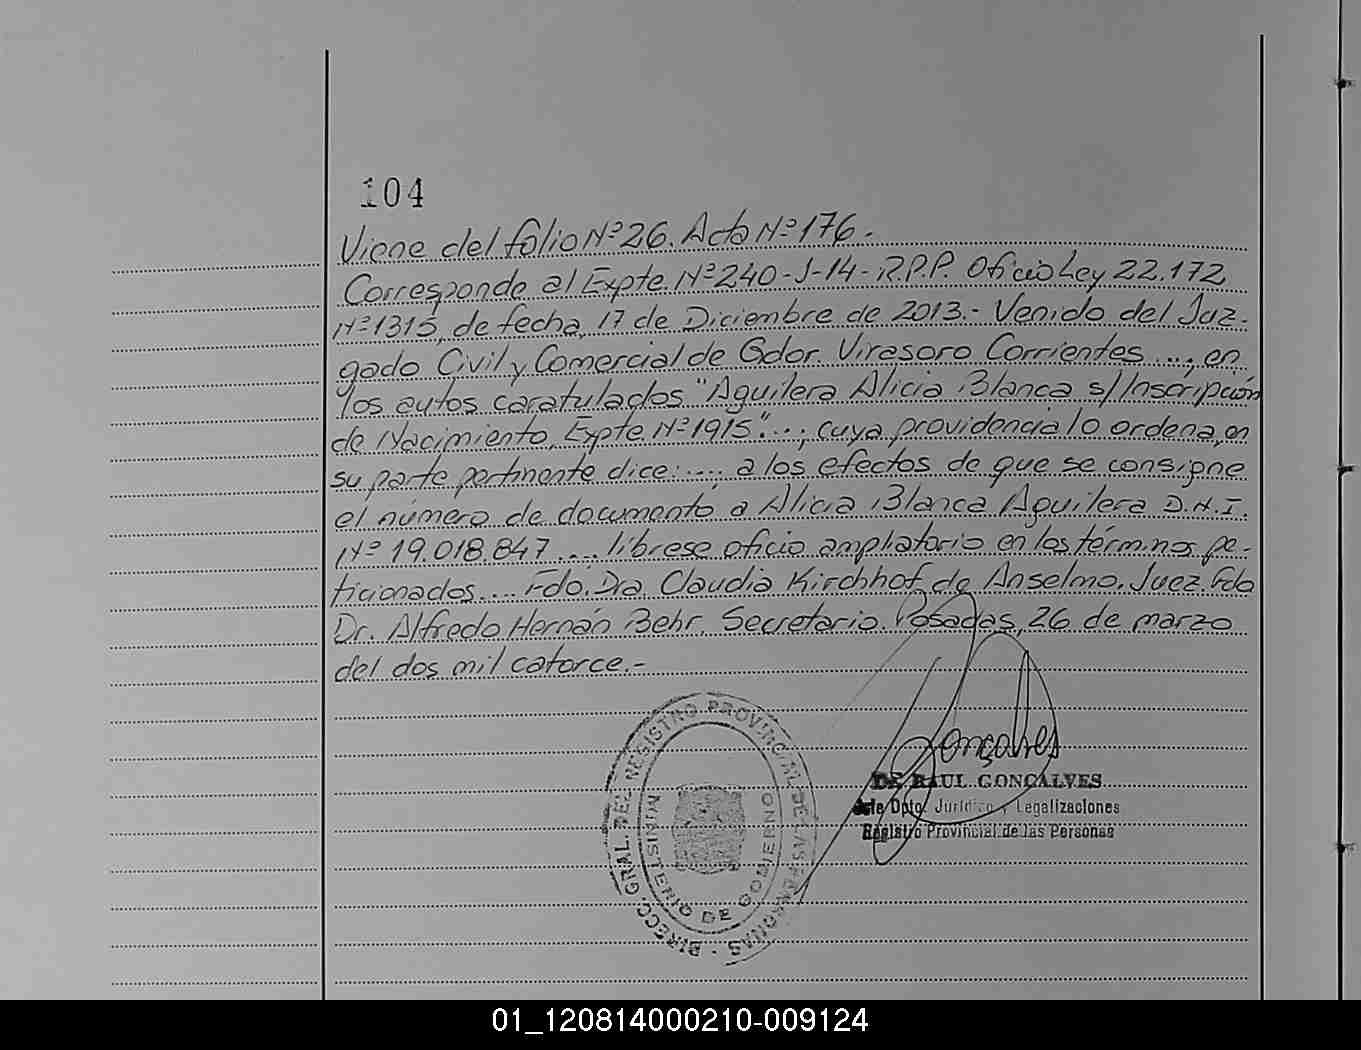 104
Viene del folio Nº 26. Acta Nº 176.
Corresponde al Expte. Nº 240-J-14-R.P.P. Oficio Ley 22.172
Nº 1315, de fecha, 17 de Diciembre de 2013.- Venido del Juz-
gado Civil y Comercial de Gdor. Virasoro Corrientes...., en
los autos caratulados "Aguilera Alicia Blanca s/Inscripción
de Nacimiento, Expte. Nº 1915"...., cuya providencia lo ordena, en
su parte pertinente dice:....., a los efectos de que se consigne
el número de documento a Alicia Blanca Aguilera D.N.I.
Nº 19.018.847.... líbrese oficio ampliatorio en los términos pe-
ticionados.... Fdo. Dra. Claudia Kirchhof de Anselmo. Juez. Fdo
Dr. Alfredo Hernán Behr. Secretario. Posadas, 26 de marzo
del dos mil catorce.-
DIRECC. GRAL. DEL REGISTRO PROVINCIAL DE LAS PERSONAS -
MINISTERIO DE GOBIERNO
Gonçalves
RAUL GONCALVES
Dpto. Jurídico y Legalizaciones
Registro Provincial de las Personas
01_120814000210-009124